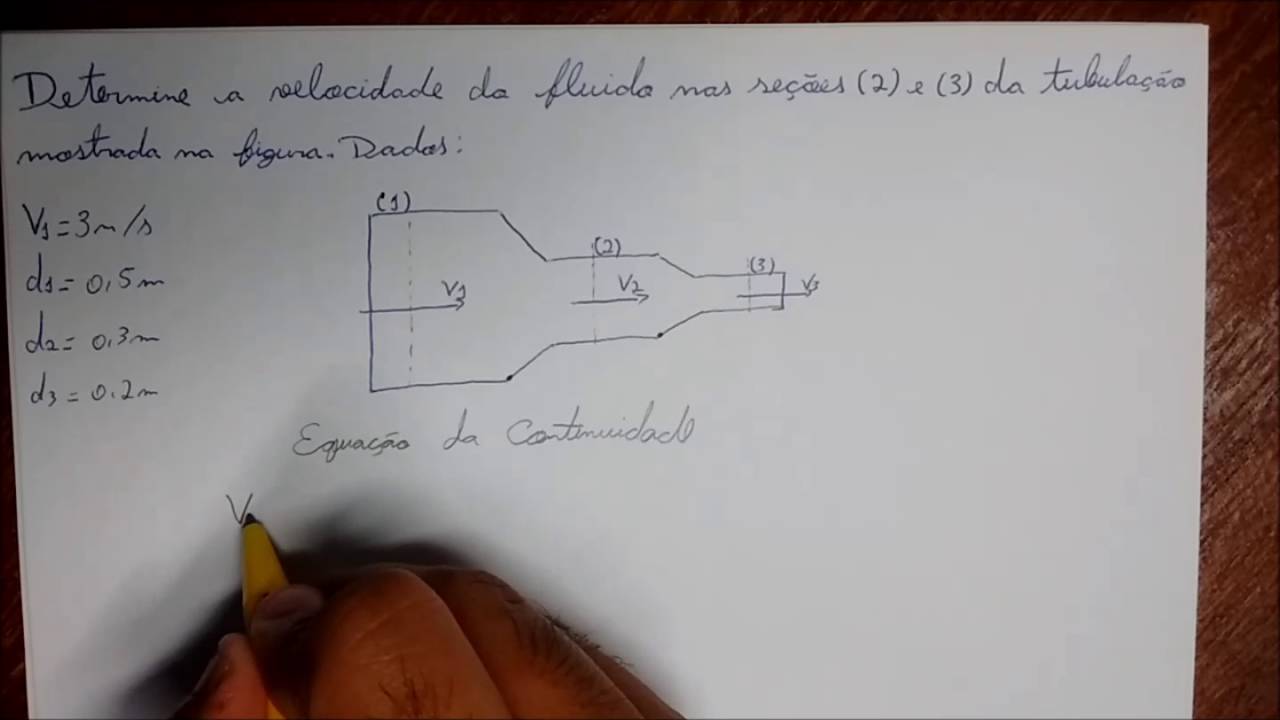 Determine a velocidade do fluido nas seções (2) e (3) da tubulação
mostrada na figura. Dados:
V1 = 3 m/s
d1 = 0,5 m
d2 = 0,3 m
d3 = 0.2 m
(1)
V1
(2)
V2
(3)
V3
Equação da Continuidade
V